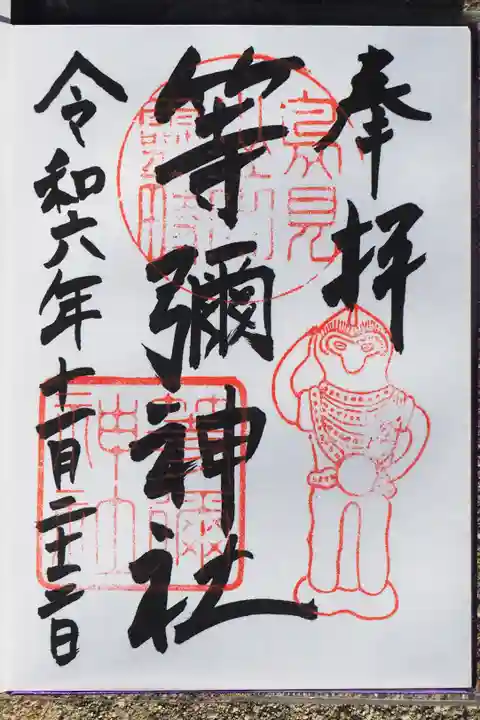 奉拝
鳥見
等彌神社
令和六年十一月二十三日